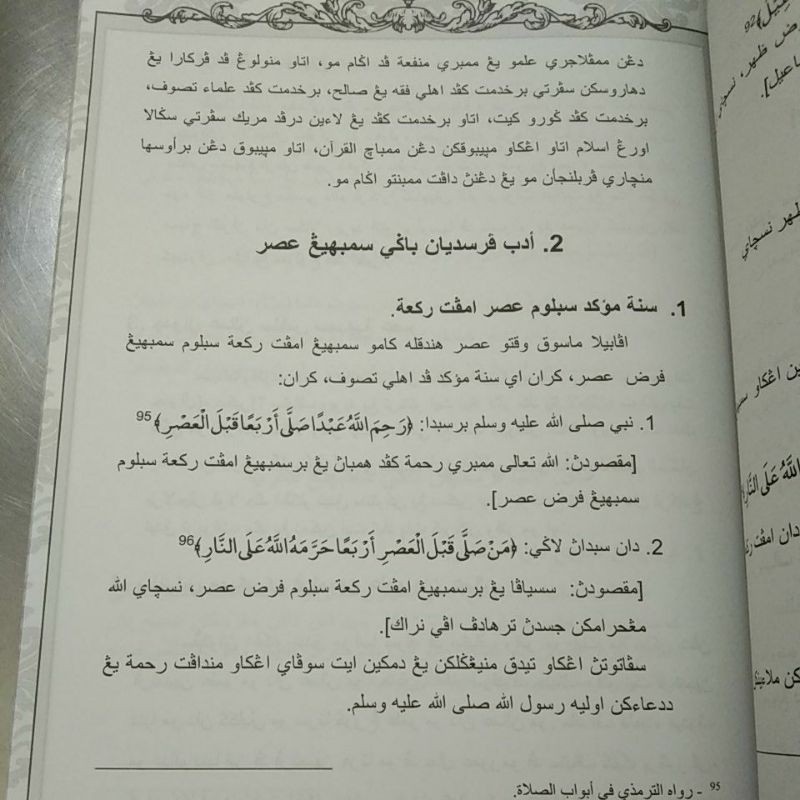 دڠن ممڤلاجري علمو يڠ ممبري منفعة ڤد اݢام مو، اتاو منولوڠ ڤد ڤركارا يڠ
دهاروسكن سڤرتي برخدمت كڤد اهلي فقه يڠ صالح، برخدمت كڤد علماء تصوف،
برخدمت كڤد ݢورو كيت، اتاو برخدمت كڤد يڠ لاءين درڤد مريك سڤرتي سݢالا
اورڠ اسلام اتاو اڠكاو مڽيبوقكن دڠن ممباچ القرآن، اتاو مڽيبوق دڠن برأوسها
منچاري ڤربلنجأن مو يڠ دڠنڽ داڤت ممبنتو اݢام مو.
2. أدب ڤرسديان باݢي سمبهيڠ عصر
1. سنة مؤكد سبلوم عصر امڤت ركعة.
اڤابيلا ماسوق وقتو عصر هندقله كامو سمبهيڠ امڤت ركعة سبلوم سمبهيڠ
فرض عصر، كران اي سنة مؤكد ڤد اهلي تصوف، كران:
1. نبي صلى الله عليه وسلم برسبدا: ﴿رَحِمَ اللَّهُ عَبْدًا صَلَّى أَرْبَعًا قَبْلَ الْعَصْرِ﴾95
[مقصودڽ: الله تعالى ممبري رحمة كڤد همباڽ يڠ برسمبهيڠ امڤت ركعة سبلوم
سمبهيڠ فرض عصر].
2. دان سبداڽ لاݢي: ﴿مَنْ صَلَّى قَبْلَ الْعَصْرِ أَرْبَعًا حَرَّمَهُ اللَّهُ عَلَى النَّارِ﴾96
[مقصودڽ: سسياڤا يڠ برسمبهيڠ امڤت ركعة سبلوم فرض عصر، نسچاي الله
مڠحرامكن جسدڽ ترهادڤ اڤي نراك].
سڤاتوتڽ اڠكاو تيدق منيڠݢلكن يڠ دمكين ايت سوڤاي اڠكاو منداڤت رحمة يڠ
ددعاءكن اوليه رسول الله صلى الله عليه وسلم.
95 - رواه الترمذي في أبواب الصلاة.